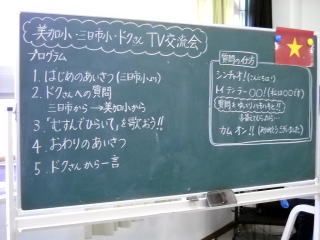 美加小・三日市小・ドクさん TV交流会
プログラム
1. はじめのあいさつ (三日市小より)
2. ドクさんへの質問
三日市から → 美加小から
3. 「むすんでひらいて」を歌おう!!
4. おわりのあいさつ
5. ドクさんから一言
質問の仕方
シンチャオ! (こんにちは)
トイ テン ラー ○○! (私は○○です)
質問をゆっくりハキハキと!!
カム オン!! (ありがとうございました)